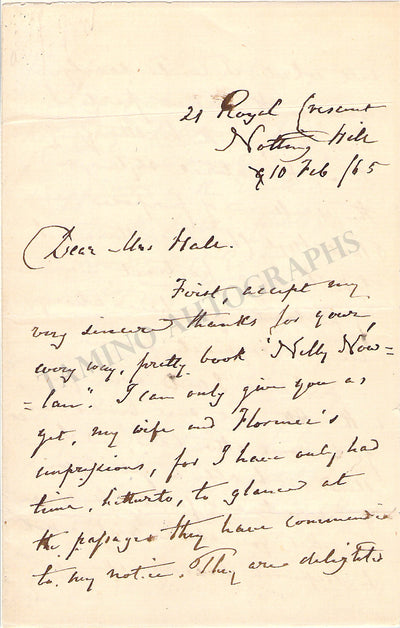 21 Royal Crescent
Notting Hill
10 Feb /65
Dear Mrs Hall.
First, accept my
very sincere thanks for your,
every way, pretty book 'Nelly Now=
=lan'. I can only give you as
yet, my wife and Florence's
impressions, for I have only had
time, hitherto, to glance at
the passages they have commended
to my notice. They are delighted
TAMINO AUTOGRAPHS